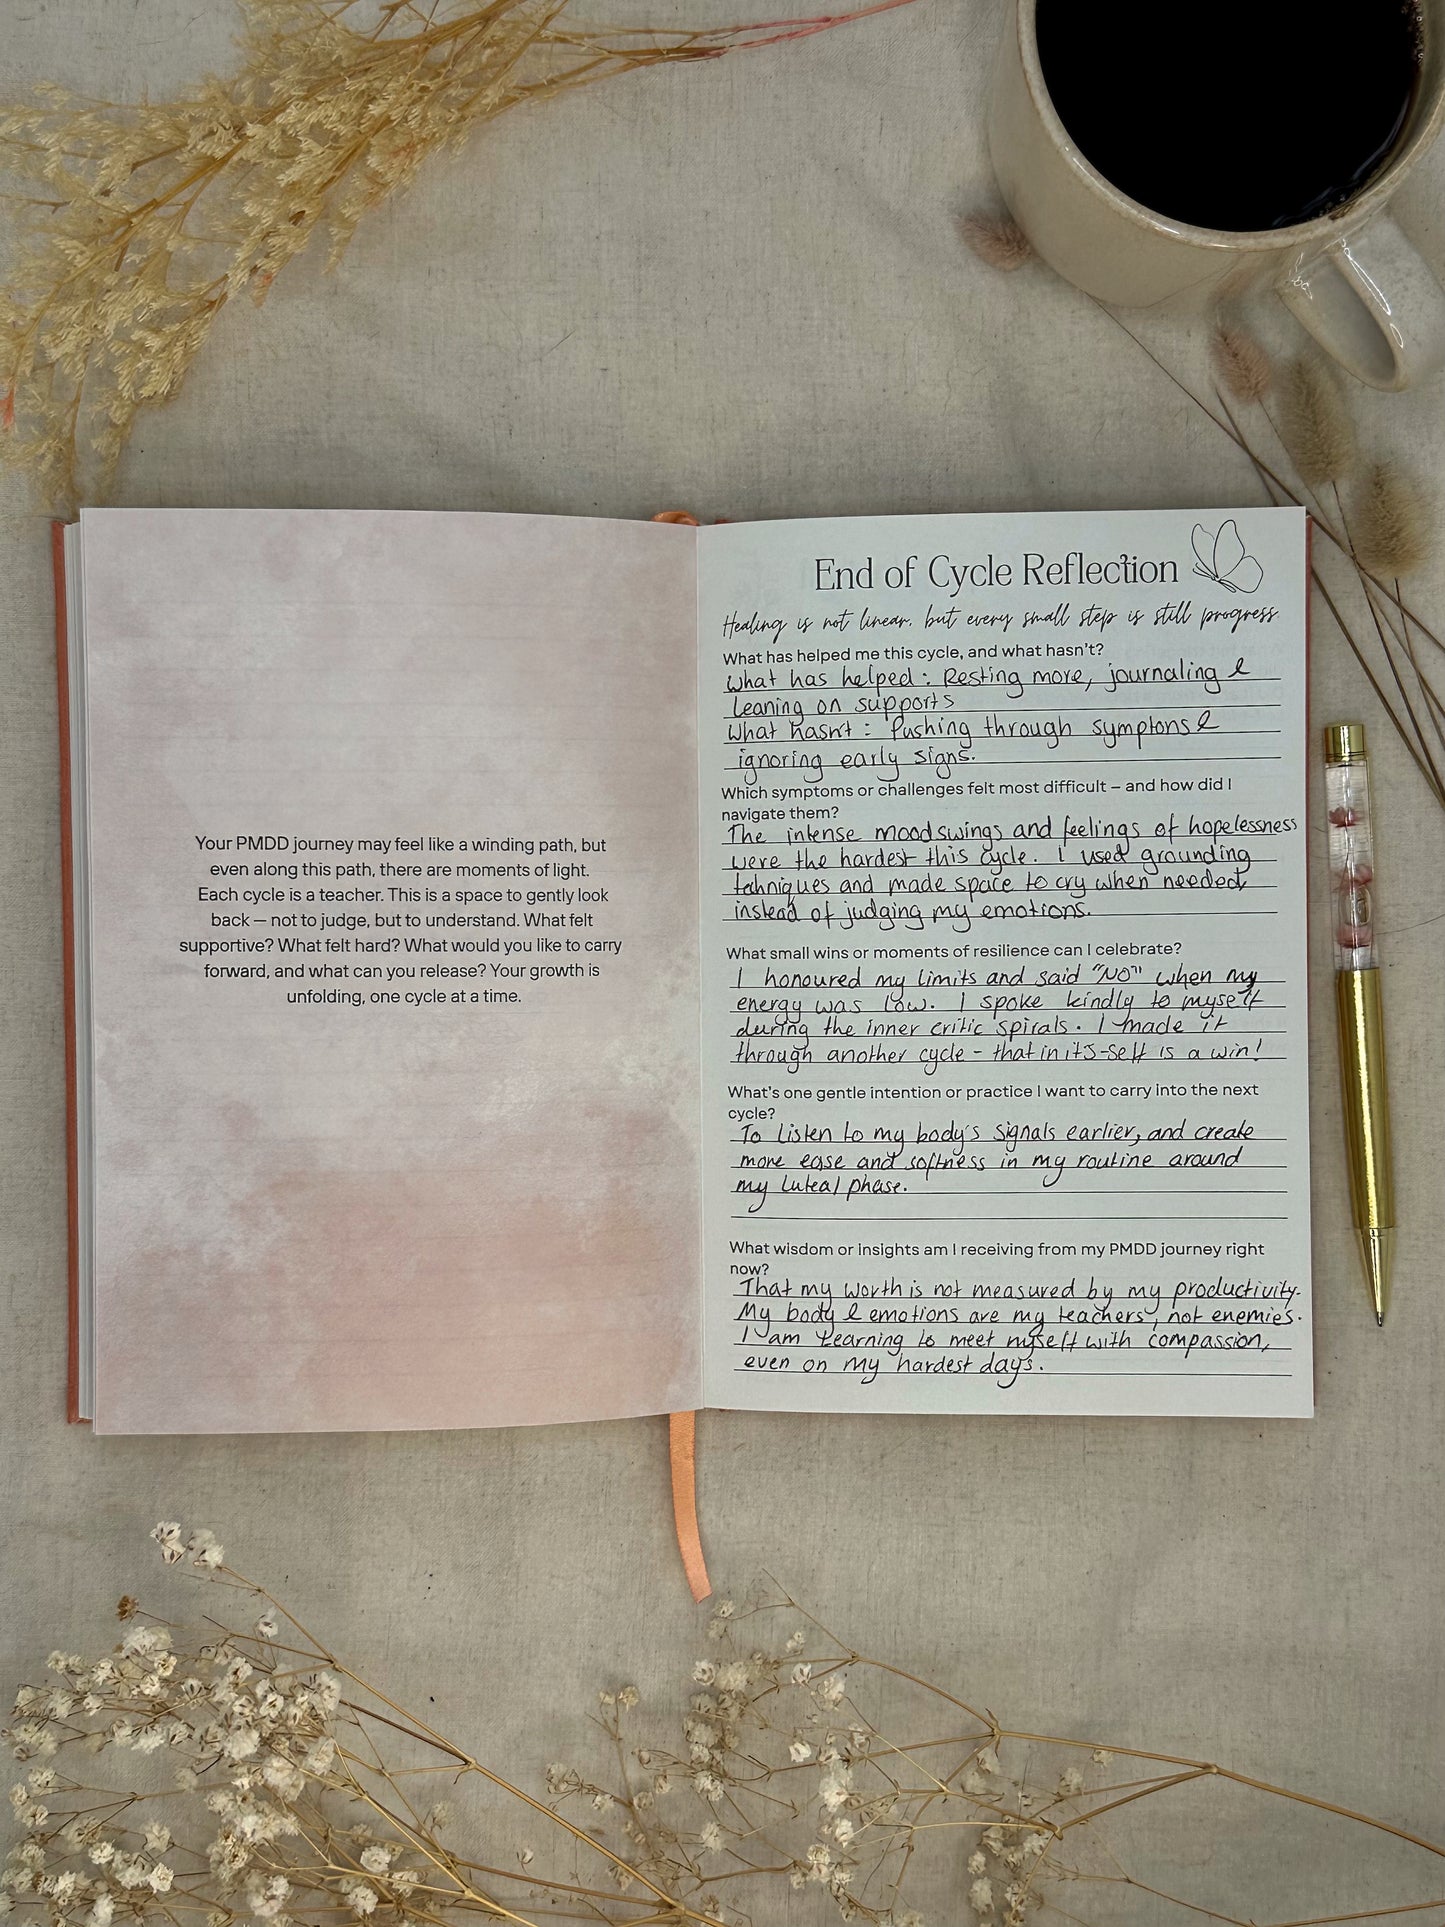 Your PMDD journey may feel like a winding path, but
even along this path, there are moments of light.
Each cycle is a teacher. This is a space to gently look
back – not to judge, but to understand. What felt
supportive? What felt hard? What would you like to carry
forward, and what can you release? Your growth is
unfolding, one cycle at a time.
End of Cycle Reflection
Healing is not linear, but every small step is still progress.
What has helped me this cycle, and what hasn't?
What has helped: Resting more, journaling &
leaning on supports
What hasn't: Pushing through symptons &
ignoring early signs.
Which symptoms or challenges felt most difficult – and how did I
navigate them?
The intense moodswings and feelings of hopelessness
were the hardest this cycle. I used grounding
techniques and made space to cry when needed,
instead of judging my emotions.
What small wins or moments of resilience can I celebrate?
I honoured my limits and said "NO" when my
energy was low. I spoke kindly to myself
during the inner critic spirals. I made it
through another cycle - that in itS-self is a win!
What's one gentle intention or practice I want to carry into the next
cycle?
To listen to my body's signals earlier, and create
more ease and softness in my routine around
my luteal phase.
What wisdom or insights am I receiving from my PMDD journey right
now?
That my worth is not measured by my productivity.
My body & emotions are my teachers, not enemies.
I am learning to meet myself with compassion,
even on my hardest days.